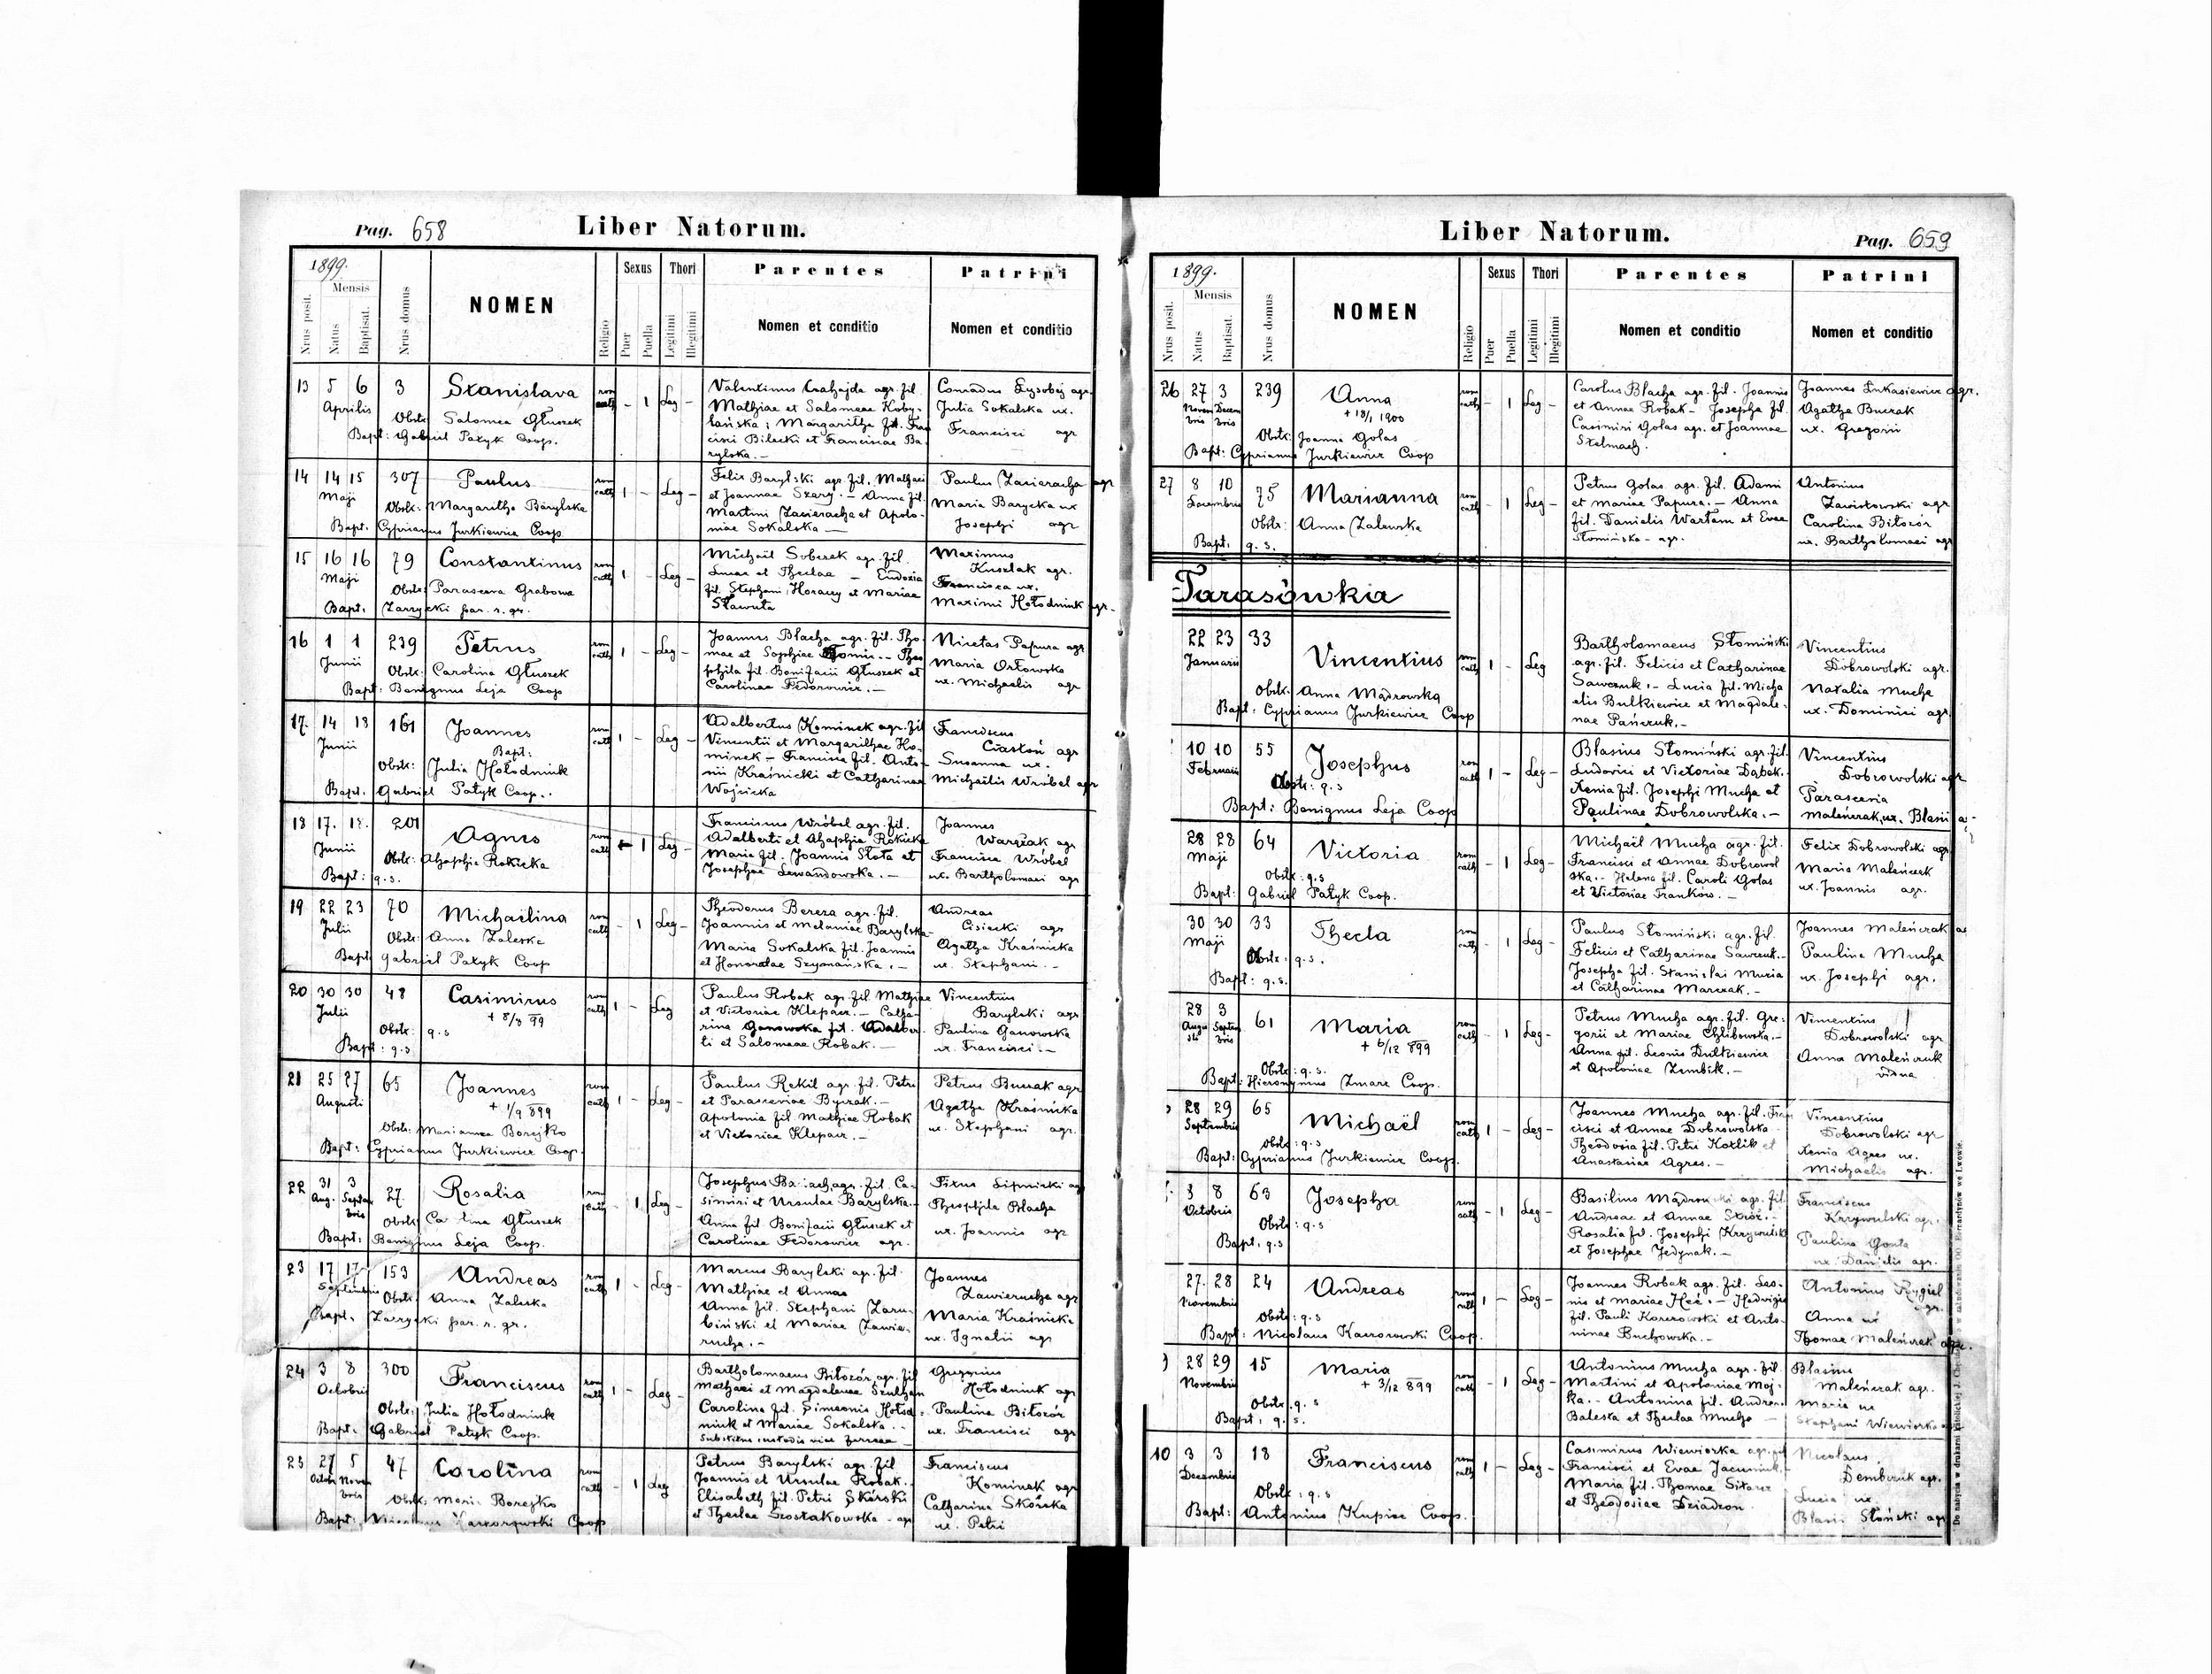 Pag. 658
Liber Natorum.
1899.
Nrus posit.
Mensis
Natus
Baptisat.
Nrus domus
NOMEN
Religio
Sexus
Puer
Puella
Thori
Legitimi
Illegitimi
Parentes
Nomen et conditio
Patrini
Nomen et conditio
13 5 6 3 Stanislava
Aprilis
Obstr: Salomea Głuszek
Bapt: Gabriel Patyk Coop.
rom cath - 1 Leg -
Valentinus agr. fil.
Mathiae et Salomeae Koby-
lańska; Margaritha fil. Fran
cisci Bilecki et Franciscae Ba-
rylska.-
Conradus Łysobej agr.
Julia Sokalska ux.
Francisci agr
14 14 15 307 Paulus
Maji
Obstr: Margaritha Barylska
Bapt. Cyprianus Jurkiewicz Coop
rom cath 1 - Leg -
Felix Barylski agr. fil. Mathaei
et Joannae Szary.- Anna fil.
Martini Zawierucha et Apolo-
niae Sokalska -
Paulus Zawierucha agr
Maria Barycka ux
Josephi agr
15 16 16 79 Constantinus
Maji
Obstr: Parasceva Grabowa
Bapt. Zarzycki par. r. gr.
rom cath 1 - Leg -
Michaël Soberek agr. fil.
Lucae et Theclae - Eudoxia
fil. Stephani Horacy et Mariae
Sławuta
Maximus
Kuszlak agr.
Francisca ux.
Maximi Hołodniuk agr.
16 1 1 239 Petrus
Junii
Obstr: Carolina Głuszek
Bapt: Benignus Leja Coop
rom cath 1 - Leg -
Joannes Blacha agr. fil. Tho-
mae et Sophiae - Theo
phila fil. Bonifacii Głuszek et
Carolinae Fedorowicz.-
Nicetas Papura agr
Maria Orłowska
ux. Michaelis agr
17. 14 18 161 Joannes
Junii
Bapt:
Obstr: Julia Hołodniuk
Bapt. Gabriel Patyk Coop.
rom cath 1 - Leg -
Adalbertus Kominek agr. fil
Vincentii et Margarithae Ko-
minek - Francisca fil. Anto-
nii Kraśnicki et Catharinae
Wojcicka
Franciscus
Ciastoń agr
Susanna ux.
Michaelis Wróbel agr
18 17. 18. 201 Agnes
Junii
Obstr: Ahaphia Rokicka
Bapt: q.s.
rom cath 1 Leg -
Franciscus Wróbel agr. fil.
Adalberti et Ahaphia Rokicka
Maria fil. Joannis Słota et
Josephae Lewandowska.-
Joannes
Warszak agr
Francisca Wróbel
ux. Bartholomaei agr
19 22 23 70 Michaëlina
Julii
Obstr: Anna Zaleska
Bapt: Gabriel Patyk Coop
rom cath - 1 Leg -
Theodorus Bereza agr. fil.
Joannis et Melaniae Barylska-
Maria Sokalska fil. Joannis
et Honoratae Szymańska.-
Andreas
Cisiecki agr
Agatha Kraśnicka
ux. Stephani.-
20 30 30 48 Casimirus
Julii
+ 8/8 99
Obstr: q.s
Bapt: q.s.
rom cath 1 - Leg
Paulus Robak agr. fil Mathiae
et Victoriae Klepacz.- Catha-
rina Ganowska fil. Adalber-
ti et Salomeae Robak.-
Vincentius
Barylski agr
Paulina Ganowska
ux. Francisci.-
21 25 27 65 Joannes
Augusti
+ 1/9 899
Obstr: Marianna Borejko
Bapt: Cyprianus Jurkiewicz Coop.
rom cath 1 - Leg -
Paulus Rekil agr. fil. Petri
et Parasceviae Byczak.-
Apolonia fil Mathiae Robak
et Victoriae Klepacz.-
Petrus Burak agr
Agatha Kraśnicka
ux. Stephani agr.
22 31 3 27. Rosalia
Aug. Septem bris
Obstr: Głuszek
Bapt: Benignus Leja Coop.
rom cath - 1 Leg -
Josephus agr. fil. Ca-
simiri et Ursulae Barylska.-
Anna fil. Bonifacii Głuszek et
Carolinae Fedorowicz agr.
Lipnicki agr
Theophila Blacha
ux. Joannis agr
23 17 17 153 Andreas
Septembris
Obstr: Anna Zaleska
Bapt. Zarzycki par. r. gr.
rom cath 1 - Leg -
Marcus Barylski agr. fil.
Mathiae et Annae
Anna fil. Stephani Zaru-
biński et Mariae Zawie-
rucha.-
Joannes
Zawierucha agr
Maria Kraśnicka
ux. Ignatii agr
24 3 8 300 Franciscus
Octobris
Obstr: Julia Hołodniuk
Bapt. Gabriel Patyk Coop.
rom cath 1 - Leg -
Bartholomaeus Biłozór agr. fil
Mathaei et Magdalenae
Carolina fil. Simeonis Hołod-
niuk et Mariae Sokalska.-
Substitus custodis viae ferreae -
Gregorius
Hołodniuk agr
Paulina Biłozór
ux. Francisci agr
25 27 5 47 Carolina
Octobr Novem bris
Obstr: Maria Borejko
Bapt: Coop
rom cath - 1 Leg
Petrus Barylski agr. fil
Joannis et Ursulae Robak.-
Elisabeth fil. Petri Skórski
et Theclae Szostakowska - agr
Franciscus
Kominek agr
Catharina Skórska
ux. Petri
Liber Natorum.
Pag. 659
1899.
Nrus posit.
Mensis
Natus
Baptisat.
Nrus domus
NOMEN
Religio
Sexus
Puer
Puella
Thori
Legitimi
Illegitimi
Parentes
Nomen et conditio
Patrini
Nomen et conditio
26 27 3 239 Anna
Novem bris Decem bris
+ 18/1 1900
Obstr: Joanna Golas
Bapt: Cyprianus Jurkiewicz Coop
rom cath - 1 Leg -
Carolus Blacha agr. fil. Joannis
et Annae Robak - Josepha fil.
Casimiri Golas agr. et Joannae
Stelmach.
Joannes Łukasiewicz agr.
Agatha Burak
ux. Gregorii
27 8 10 75 Marianna
Decembris
Obstr: Anna Zalewska
Bapt. q.s.
rom cath - 1 Leg -
Petrus Golas agr. fil. Adami
et Mariae Papura.- Anna
fil. Danielis Wartam et Evae
Słomińska - agr.
Antonius
Zawistowski agr
Carolina Biłozór
ux. Bartholomaei agr
Tarasówka
22 23 33 Vincentius
Januarii
Obstr: Anna Mądrowska
Bapt: Cyprianus Jurkiewicz Coop
rom cath 1 - Leg
Bartholomaeus Słomiński
agr. fil. Felicis et Catharinae
Sawczuk.- Lucia fil. Micha
elis Bulkiewicz et Magdale-
nae Pańczuk.-
Vincentius
Dobrowolski agr.
Natalia Mucha
ux. Dominici agr.
10 10 55 Josephus
Februarii
Obstr: q.s
Bapt: Benignus Leja Coop
rom cath 1 - Leg -
Blasius Słomiński agr. fil.
Ludovici et Victoriae Dąbek.-
Xenia fil. Josephi Mucha et
Paulinae Dobrowolska.-
Vincentius
Dobrowolski agr
Parascevia
Maleńczak, ux. Blasii
28 28 64 Victoria
Maji
Obstr: q.s
Bapt: Gabriel Patyk Coop.
rom cath - 1 Leg -
Michaël Mucha agr. fil.
Francisci et Annae Dobrowol
ska.- Helena fil. Caroli Golas
et Victoriae Franków.-
Felix Dobrowolski agr
Maria Maleńczak
ux. Joannis agr.
30 30 33 Thecla
Maji
Obstr: q.s.
Bapt: q.s.
rom cath - 1 Leg -
Paulus Słomiński agr. fil.
Felicis et Catharinae Sawczuk.-
Josepha fil. Stanislai Mucia
et Catharinae Marczak.-
Joannes Maleńczak
Paulina Mucha
ux. Josephi agr.
28 3 61 Maria
Augu sti Septem bris
+ 6/12 899
Obstr: q.s.
Bapt: Hieronymus Zmarz Coop.
rom cath - 1 Leg -
Petrus Mucha agr. fil. Gre-
gorii et Mariae Chlibowska.-
Anna fil. Leonis Dutkiewicz
et Apoloniae Zembik.-
Vincentius
Dobrowolski agr
Anna Maleńczuk
vidua
28 29 65 Michaël
Septembris
Obstr: q.s
Bapt: Cyprianus Jurkiewicz Coop.
rom cath 1 - Leg -
Joannes Mucha agr. fil. Fran
cisci et Annae Dobrowolska
Theodosia fil. Petri Kozlik et
Anastasiae Agres.-
Vincentius
Dobrowolski agr
Xenia Agres ux.
Michaelis agr.
3 8 63 Josepha
Octobris
Obstr: q.s
Bapt. q.s
rom cath - 1 Leg -
Basilius agr. fil.
Andreae et Annae Stróż.-
Rosalia fil. Josephi Krzywulski
et Josephae Jedynak.-
Franciscus
Krzywulski agr.
Paulina Gonta
ux. Danielis agr.
27. 28 24 Andreas
Novembris
Obstr: q.s
Bapt: Nicolaus Kaczorowski Coop.
rom cath 1 - Leg -
Joannes Robak agr. fil. Leo-
nis et Mariae Heć.- Hedvigis
fil. Pauli Kozerowski et Anto-
ninae Buchowska.-
Antonius Rygiel
agr.
Anna ux
Thomae Maleńczak agr.
28 29 15 Maria
Novembris
+ 3/12 899
Obstr. q.s
Bapt. q.s.
rom cath - 1 Leg -
Antonius Mucha agr. fil.
Martini et Apoloniae Moj-
ka.- Antonina fil. Andreae
Baleska et Theclae Mucha -
Blasius
Maleńczak agr.
Maria ux
Stephani Wiewiorka
10 3 3 18 Franciscus
Decembris
Obstr: q.s
Bapt: Antonius Kupiec Coop.
rom cath 1 - Leg -
Casimirus Wiewiorka agr. fil
Francisci et Evae
Maria fil. Thomae Sitarz
et Theodosiae Dziadzon.
Nicolaus
Demberuk agr.
Lucia ux.
Blasii Słoński agr